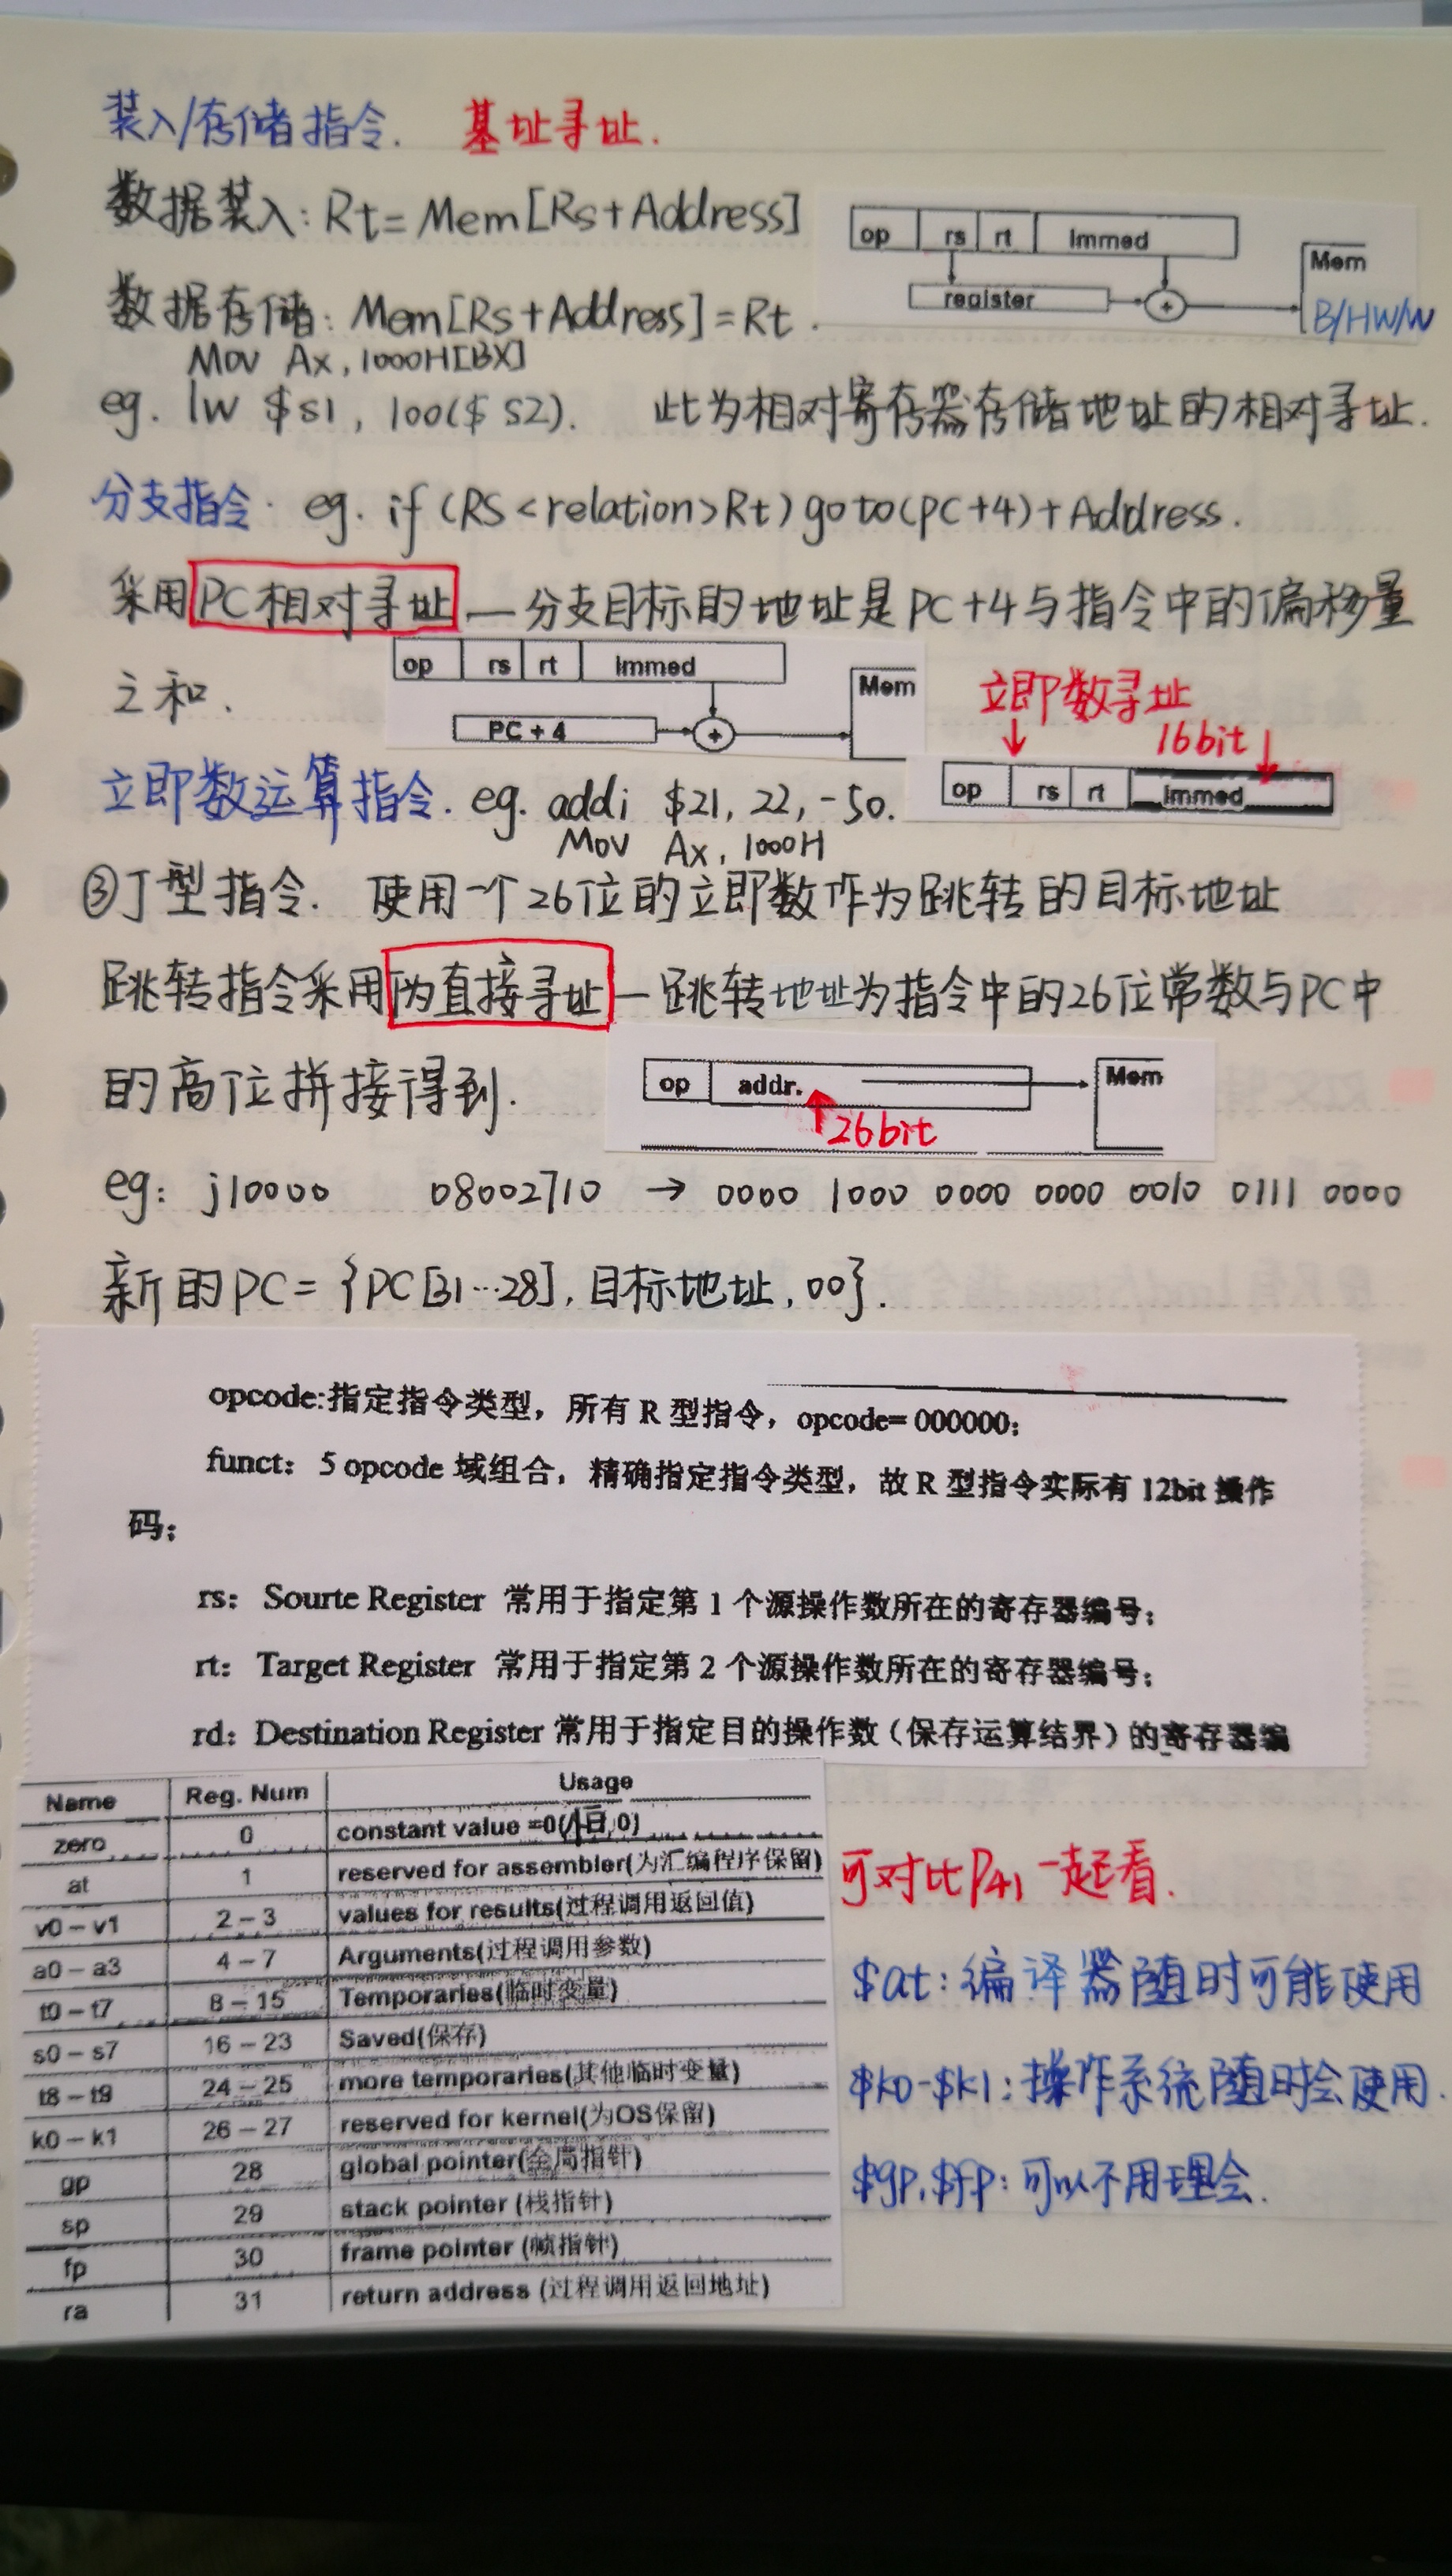 装入/存储指令. 基址寻址.
数据装入: Rt=Mem[Rs+Address]
op rs rt Immed
register + Mem
B/HW/W
数据存储: Mem[Rs+Address]=Rt.
Mov Ax, 1000H[BX]
eg. lw $s1, 100($s2). 此为相对寄存器存储地址的相对寻址.
分支指令. eg. if (RS<relation>Rt) goto(PC+4)+Address.
采用PC相对寻址—分支目标的地址是PC+4与指令中的偏移量
之和.
op rs rt Immed
PC + 4 + Mem
立即数寻址
16bit
op rs rt Immed
立即数运算指令. eg. addi $21, 22, -50.
Mov Ax, 1000H
③J型指令. 使用一个26位的立即数作为跳转的目标地址
跳转指令采用伪直接寻址—跳转地址为指令中的26位常数与PC中
的高位拼接得到.
op addr. Mem
26bit
eg: j10000 08002710 → 0000 1000 0000 0000 0010 0111 0000
新的PC={PC[31…28], 目标地址, 00}.
opcode:指定指令类型，所有 R 型指令，opcode= 000000；
funct： 5 opcode 域组合，精确指定指令类型，故 R 型指令实际有 12bit 操作
码；
rs： Sourte Register 常用于指定第 1 个源操作数所在的寄存器编号；
rt： Target Register 常用于指定第 2 个源操作数所在的寄存器编号；
rd： Destination Register 常用于指定目的操作数（保存运算结界）的寄存器编
Name Reg. Num Usage
zero 0 constant value =0(恒0)
at 1 reserved for assembler(为汇编程序保留)
v0 – v1 2 – 3 values for results(过程调用返回值)
a0 – a3 4 – 7 Arguments(过程调用参数)
t0 – t7 8 – 15 Temporaries(临时变量)
s0 – s7 16 – 23 Saved(保存)
t8 – t9 24 – 25 more temporaries(其他临时变量)
k0 – k1 26 – 27 reserved for kernel(为OS保留)
gp 28 global pointer(全局指针)
sp 29 stack pointer (栈指针)
fp 30 frame pointer (帧指针)
ra 31 return address (过程调用返回地址)
可对比P41一起看.
$at: 编译器随时可能使用
$k0-$k1: 操作系统随时会使用.
$gp,$fp: 可以不用理会.